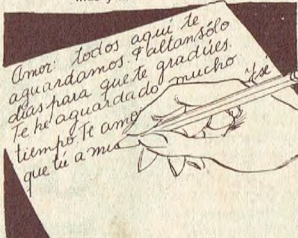 Amor: todos aquí te
aguardamos. Faltan sólo
días para que te gradúes.
Te he aguardado mucho
tiempo. Te amo
que tú a mis